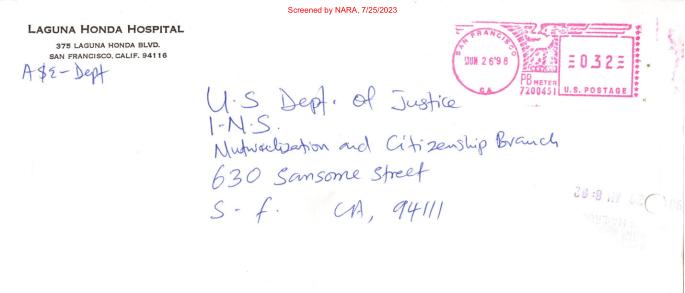 Screened by NARA, 7/25/2023
LAGUNA HONDA HOSPITAL
375 LAGUNA HONDA BLVD.
SAN FRANCISCO, CALIF. 94116
A & E - Dept
SAN FRANCISCO
JUN 26'98
CA
PB METER
7200451
0.32
U.S. POSTAGE
U.S Dept. of Justice
I-N-S.
Nutralization and Citizenship Branch
630 Sansome Street
S - f. CA, 94111